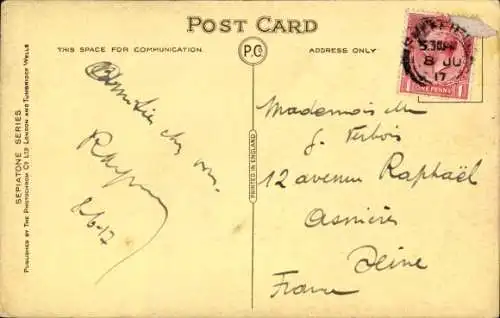 POST CARD
THIS SPACE FOR COMMUNICATION.
P.C.
ADDRESS ONLY
SEPIATONE SERIES
PUBLISHED BY THE PHOTOCHROM CO LTD LONDON AND TUNBRIDGE WELLS
PRINTED IN ENGLAND
8 JU
17
ONE PENNY
8-6-17
Mademoiselle
J. Verbois
12 avenue Raphaël
Asnières
Seine
France